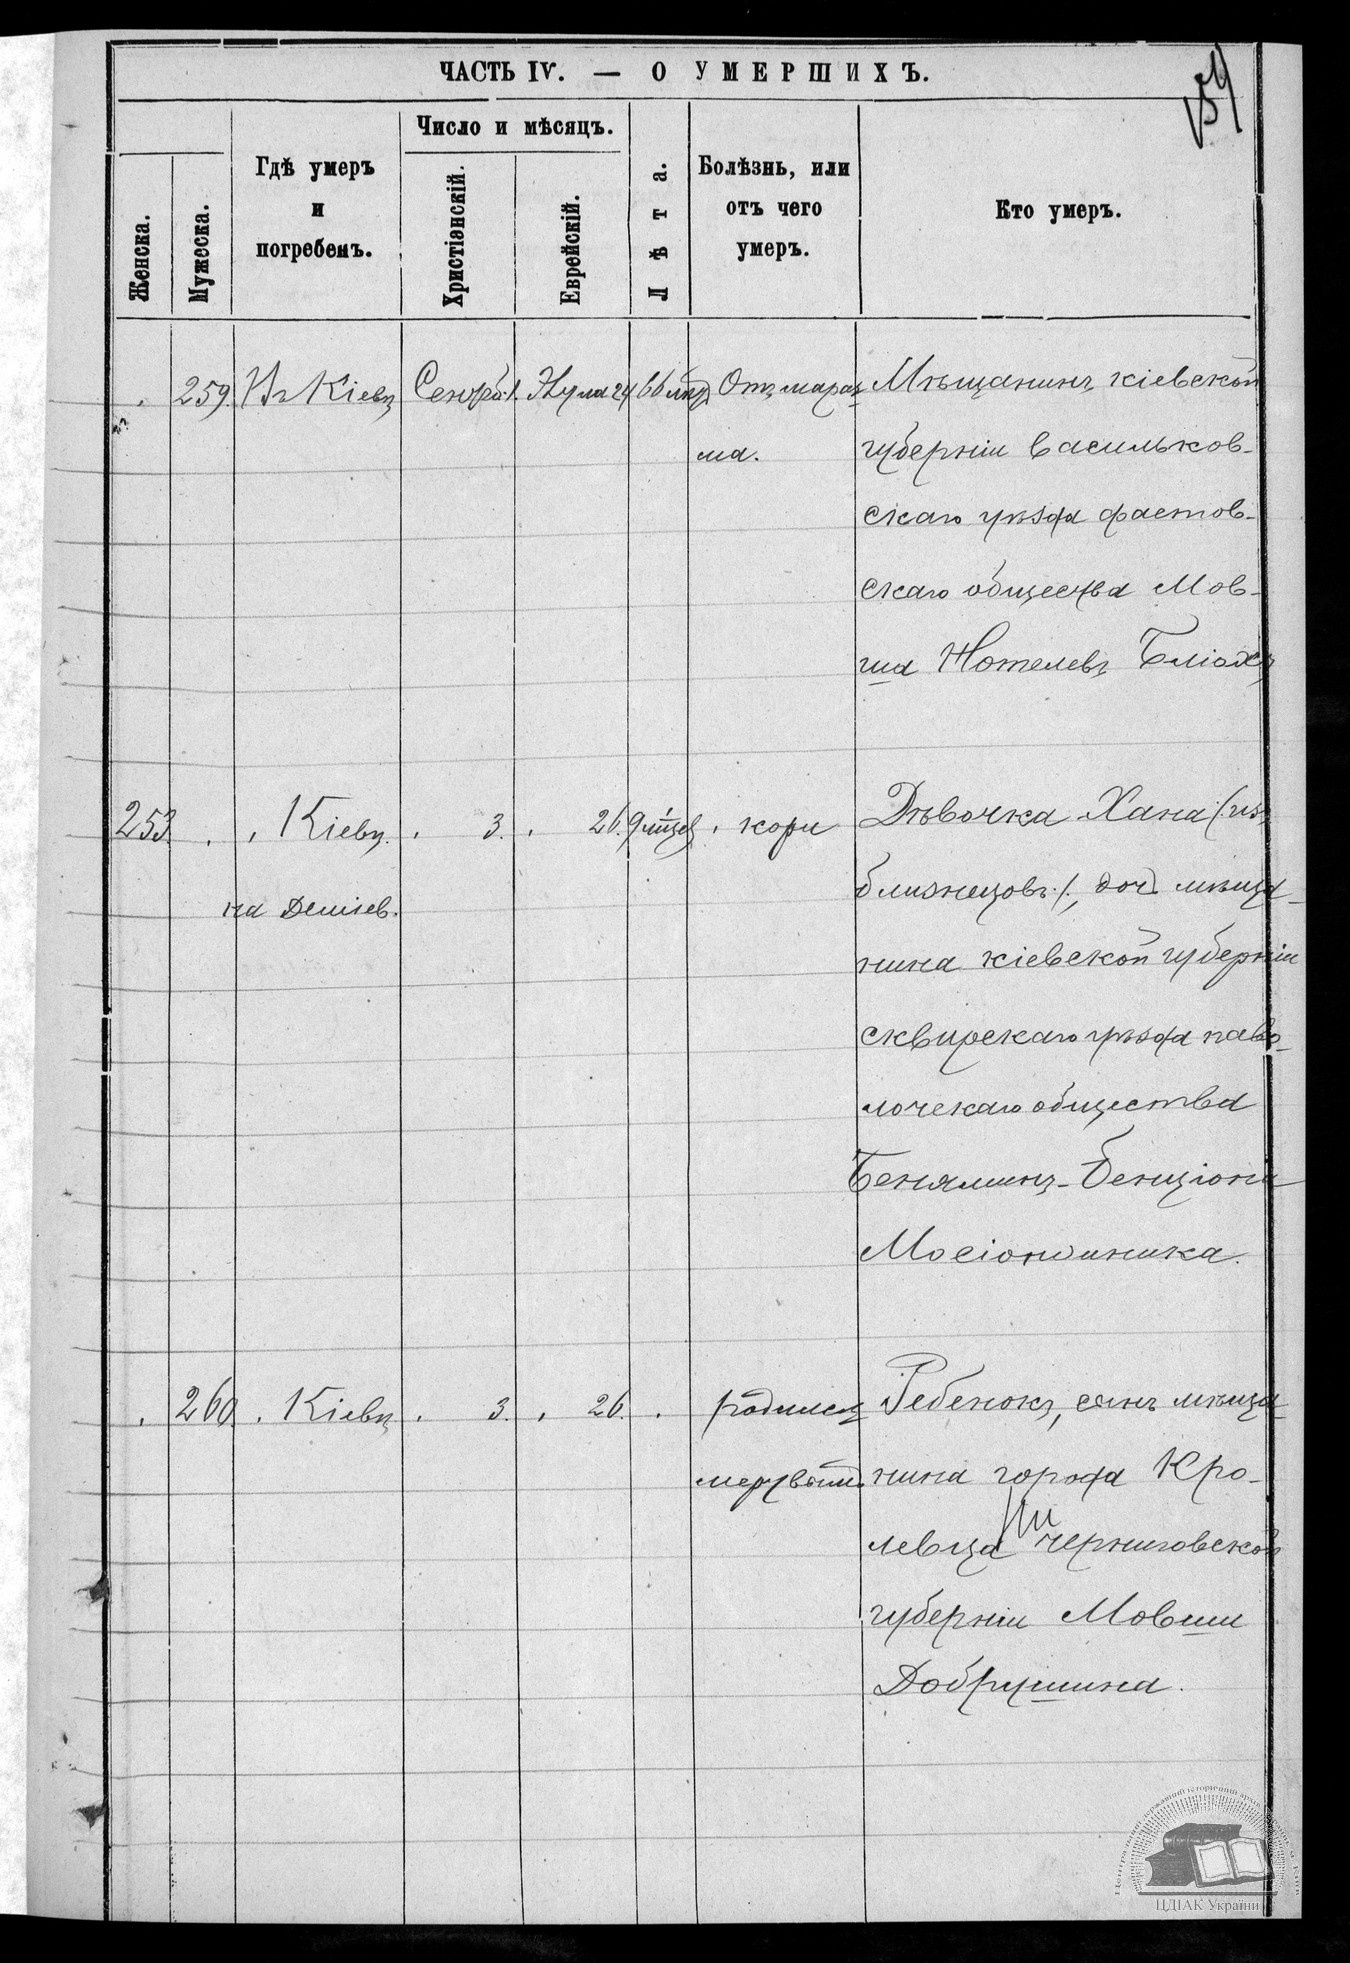 ЧАСТЬ IV. — О УМЕРШИХЪ.
Женска.
Мужеска.
Гдѣ умеръ
и
погребенъ.
Число и мѣсяцъ.
Христіэнскій.
Еврейскій.
Лѣта.
Болѣзнь, или
отъ чего
умеръ.
Кто умеръ.
259. Въ Кіевѣ 24 66 Отъ мараз- Мѣщанинъ кіевской
ма. губерніи Васильков-
скаго уѣзда фастов-
скаго общества Мов-
ша Нотелевъ Бліохъ
253. Кіевѣ. 3. 26. 9 кори Дѣвочка Хана (изъ
на Деміев. близнецовъ), доч. мѣща-
нина кіевской губерніи
сквирскаго уѣзда паво-
лочскаго общества
Беняминъ-Бенціона
260. Кіевѣ 3. 26. родился Ребенокъ, сынъ мѣща-
мертвымъ нина города Кро-
левца черниговской
губерніи Мовши
Добрушина.
ЦДІАК України